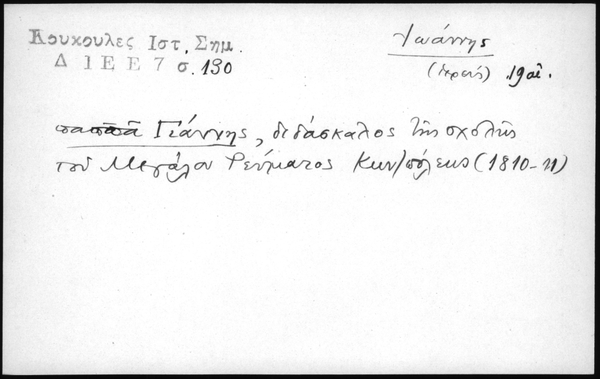 Κουκουλες Ιστ. Σημ.
Δ Ι Ε Ε 7 σ. 130
Ἰωάννης
(ἱερεύς) 19 αἰ.
παπᾶ Γιάννης, διδάσκαλος τῆς σχολῆς
τοῦ Μεγάλου Ρεύματος Κων/πόλεως (1810-11)